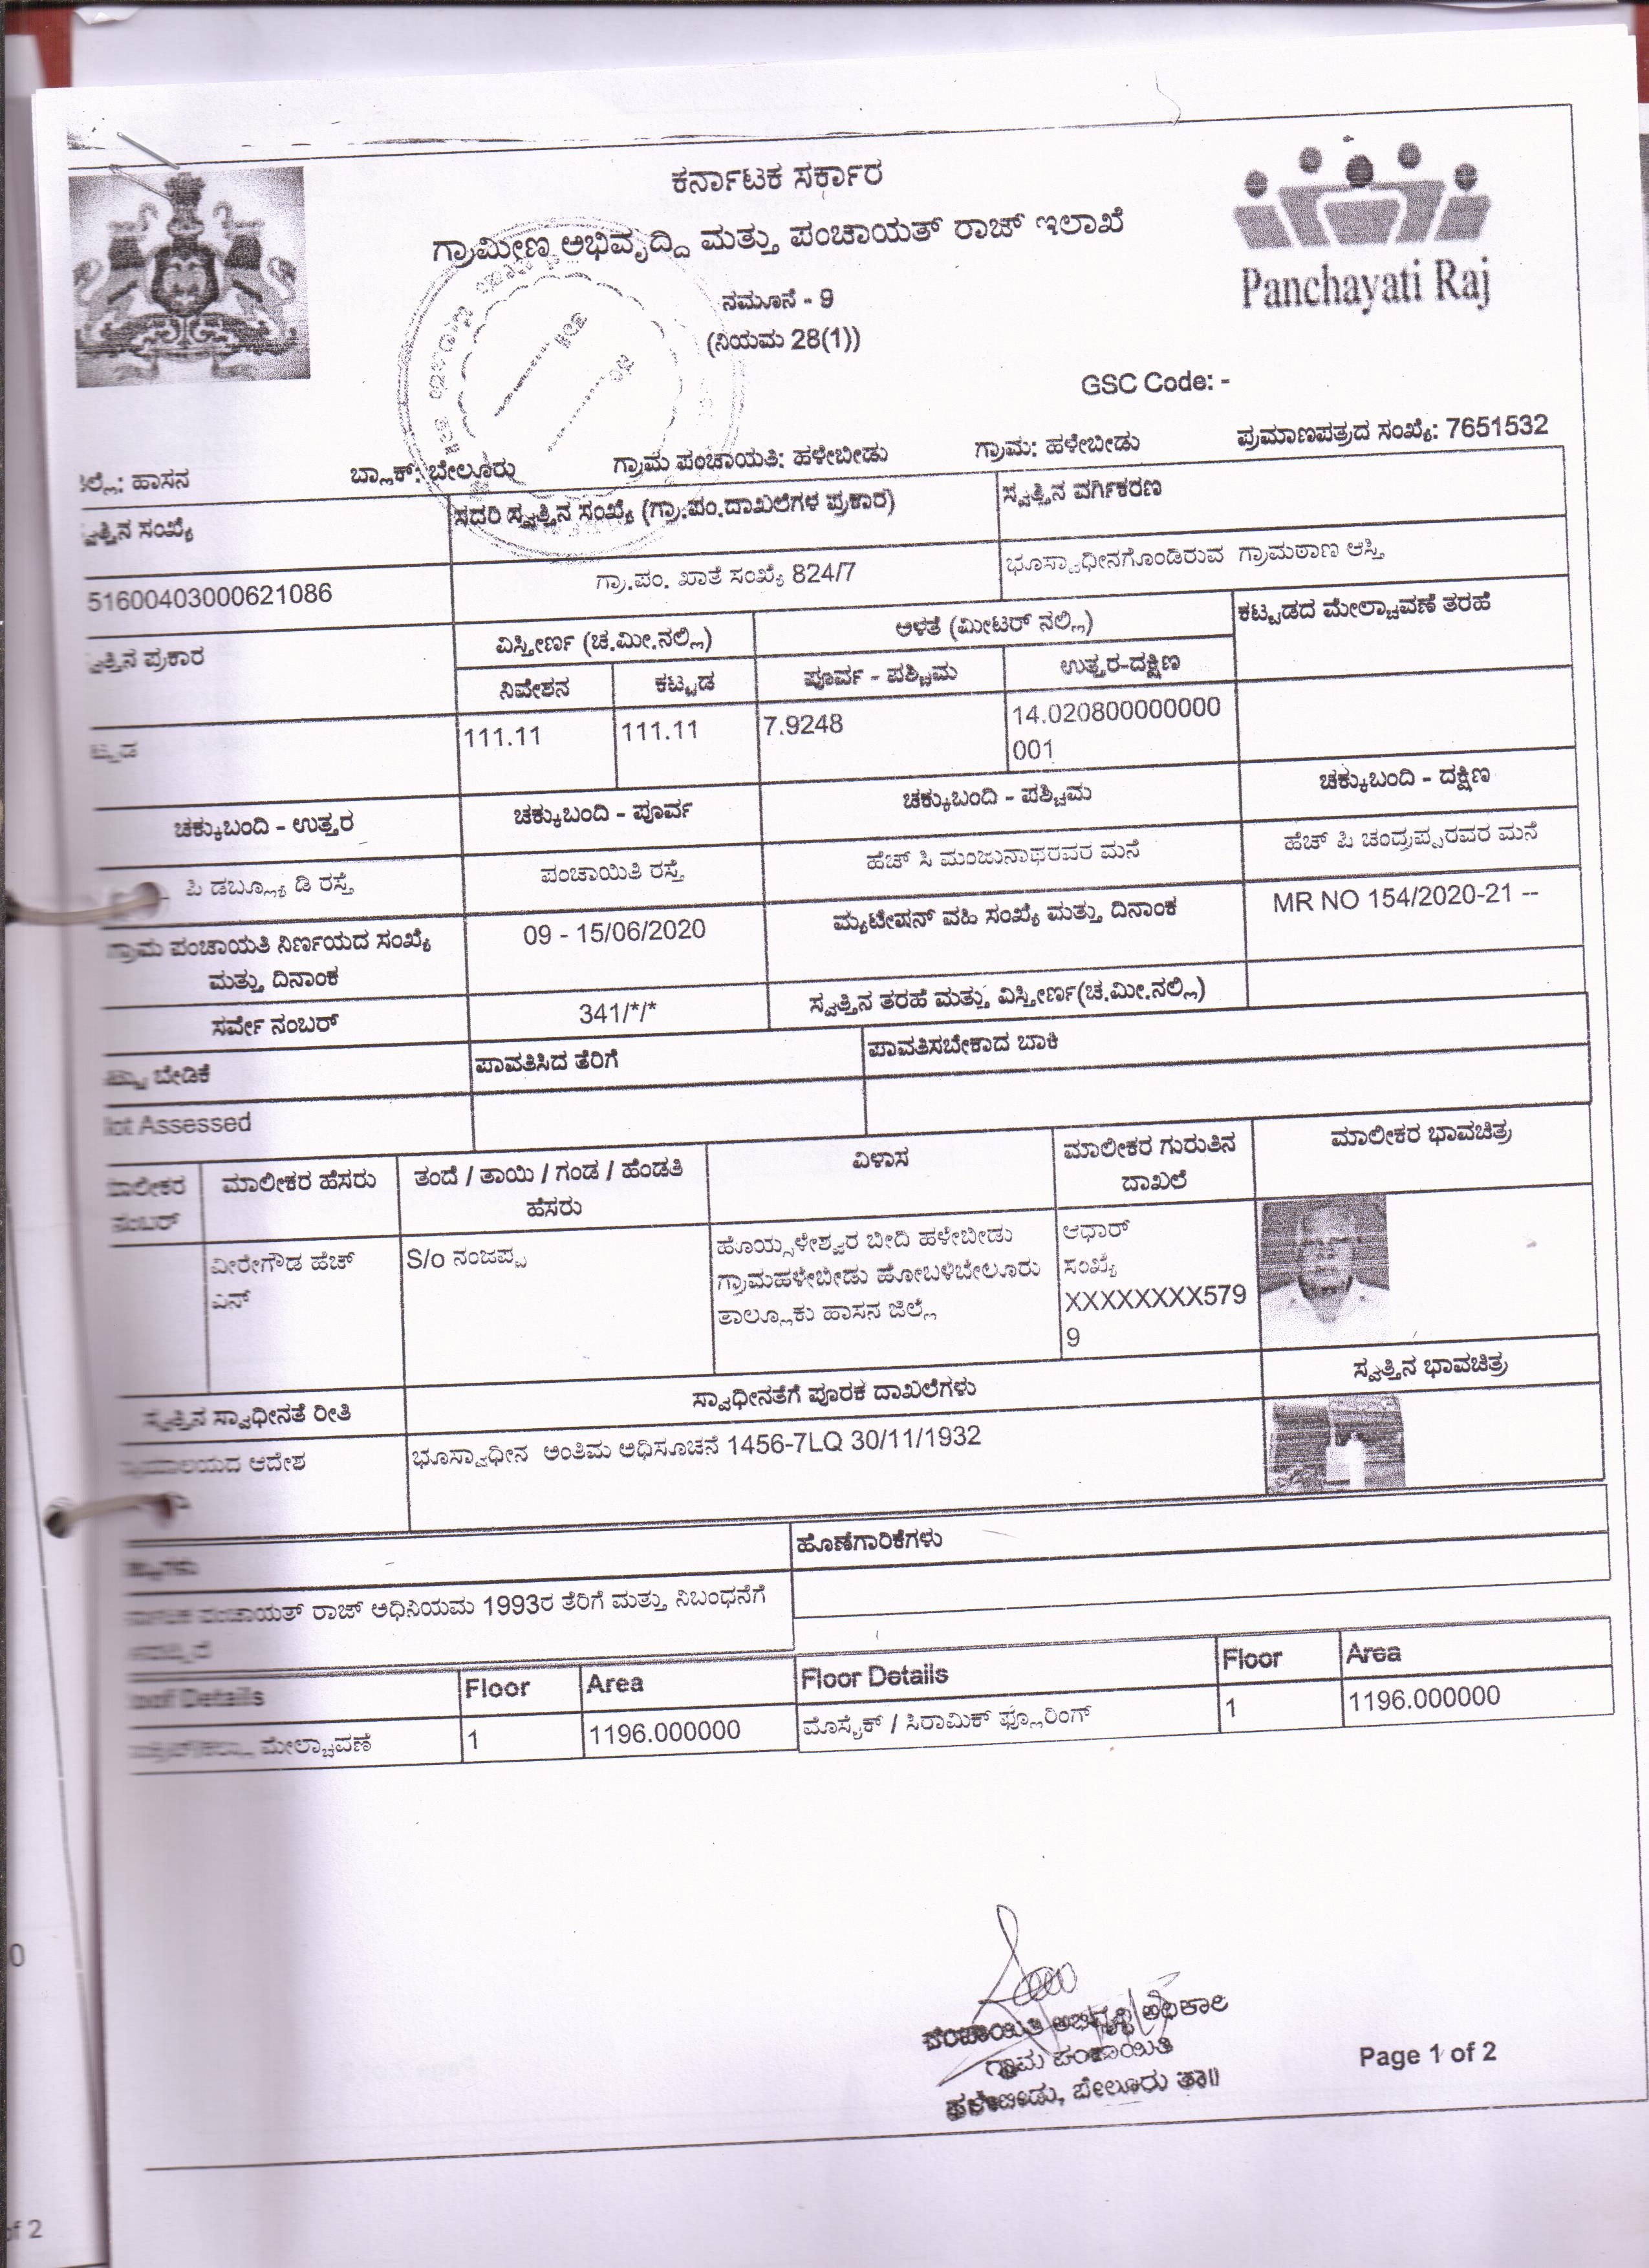 ಕರ್ನಾಟಕ ಸರ್ಕಾರ
ಗ್ರಾಮೀಣ ಅಭಿವೃದ್ದಿ ಮತ್ತು ಪಂಚಾಯತ್ ರಾಜ್ ಇಲಾಖೆ
Panchayati Raj
ನಮೂನೆ - 9
(ನಿಯಮ 28(1))
GSC Code: -
ಲ್ಲೆ: ಹಾಸನ ಬ್ಲಾಕ್: ಬೇಲೂರು ಗ್ರಾಮ ಪಂಚಾಯತಿ: ಹಳೇಬೀಡು ಗ್ರಾಮ: ಹಳೇಬೀಡು ಪ್ರಮಾಣಪತ್ರದ ಸಂಖ್ಯೆ: 7651532
ಸ್ವತ್ತಿನ ಸಂಖ್ಯೆ ಸದರಿ ಸ್ವತ್ತಿನ ಸಂಖ್ಯೆ (ಗ್ರಾ.ಪಂ.ದಾಖಲೆಗಳ ಪ್ರಕಾರ) ಸ್ವತ್ತಿನ ವರ್ಗಿಕರಣ
51600403000621086 ಗ್ರಾ.ಪಂ. ಖಾತೆ ಸಂಖ್ಯೆ 824/7 ಭೂಸ್ವಾಧೀನಗೊಂಡಿರುವ ಗ್ರಾಮಠಾಣ ಆಸ್ತಿ
ಸ್ವತ್ತಿನ ಪ್ರಕಾರ ವಿಸ್ತೀರ್ಣ (ಚ.ಮೀ.ನಲ್ಲಿ) ಅಳತೆ (ಮೀಟರ್ ನಲ್ಲಿ) ಕಟ್ಟಡದ ಮೇಲ್ಚಾವಣೆ ತರಹೆ
ನಿವೇಶನ ಕಟ್ಟಡ ಪೂರ್ವ - ಪಶ್ಚಿಮ ಉತ್ತರ-ದಕ್ಷಿಣ
ಟ್ಟಡ 111.11 111.11 7.9248 14.020800000000
001
ಚಕ್ಕುಬಂದಿ - ಉತ್ತರ ಚಕ್ಕುಬಂದಿ - ಪೂರ್ವ ಚಕ್ಕುಬಂದಿ - ಪಶ್ಚಿಮ ಚಕ್ಕುಬಂದಿ - ದಕ್ಷಿಣ
ಪಿ ಡಬ್ಲ್ಯೂ ಡಿ ರಸ್ತೆ ಪಂಚಾಯಿತಿ ರಸ್ತೆ ಹೆಚ್ ಸಿ ಮಂಜುನಾಥರವರ ಮನೆ ಹೆಚ್ ಪಿ ಚಂದ್ರಪ್ಪರವರ ಮನೆ
ಗ್ರಾಮ ಪಂಚಾಯತಿ ನಿರ್ಣಯದ ಸಂಖ್ಯೆ 09 - 15/06/2020 ಮ್ಯುಟೇಷನ್ ವಹಿ ಸಂಖ್ಯೆ ಮತ್ತು ದಿನಾಂಕ MR NO 154/2020-21 --
ಮತ್ತು ದಿನಾಂಕ
ಸರ್ವೇ ನಂಬರ್ 341/*/* ಸ್ವತ್ತಿನ ತರಹೆ ಮತ್ತು ವಿಸ್ತೀರ್ಣ(ಚ.ಮೀ.ನಲ್ಲಿ)
ಬೇಡಿಕೆ ಪಾವತಿಸಿದ ತೆರಿಗೆ ಪಾವತಿಸಬೇಕಾದ ಬಾಕಿ
Not Assessed
ಮಾಲೀಕರ ಮಾಲೀಕರ ಹೆಸರು ತಂದೆ / ತಾಯಿ / ಗಂಡ / ಹೆಂಡತಿ ವಿಳಾಸ ಮಾಲೀಕರ ಗುರುತಿನ ಮಾಲೀಕರ ಭಾವಚಿತ್ರ
ನಂಬರ್ ಹೆಸರು ದಾಖಲೆ
ವೀರೇಗೌಡ ಹೆಚ್ S/o ನಂಜಪ್ಪ ಹೊಯ್ಸಳೇಶ್ವರ ಬೀದಿ ಹಳೇಬೀಡು ಆಧಾರ್
ಎನ್ ಗ್ರಾಮಹಳೇಬೀಡು ಹೋಬಳಿಬೇಲೂರು ಸಂಖ್ಯೆ
ತಾಲ್ಲೂಕು ಹಾಸನ ಜಿಲ್ಲೆ XXXXXXXX579
9
ಸ್ವತ್ತಿನ ಸ್ವಾಧೀನತೆ ರೀತಿ ಸ್ವಾಧೀನತೆಗೆ ಪೂರಕ ದಾಖಲೆಗಳು ಸ್ವತ್ತಿನ ಭಾವಚಿತ್ರ
ಆದೇಶ ಭೂಸ್ವಾಧೀನ ಅಂತಿಮ ಅಧಿಸೂಚನೆ 1456-7LQ 30/11/1932
ಹೊಣೆಗಾರಿಕೆಗಳು
ಪಂಚಾಯತ್ ರಾಜ್ ಅಧಿನಿಯಮ 1993ರ ತೆರಿಗೆ ಮತ್ತು ನಿಬಂಧನೆಗೆ
Roof Details Floor Area Floor Details Floor Area
ಮೇಲ್ಚಾವಣೆ 1 1196.000000 ಮೊಸೈಕ್ / ಸಿರಾಮಿಕ್ ಫ್ಲೂರಿಂಗ್ 1 1196.000000
ಪಂಚಾಯಿತಿ ಅಭಿವೃದ್ಧಿ ಅಧಿಕಾರಿ
ಗ್ರಾಮ ಪಂಚಾಯಿತಿ
ಹಳೇಬೀಡು, ಬೇಲೂರು ತಾ॥
Page 1 of 2
of 2